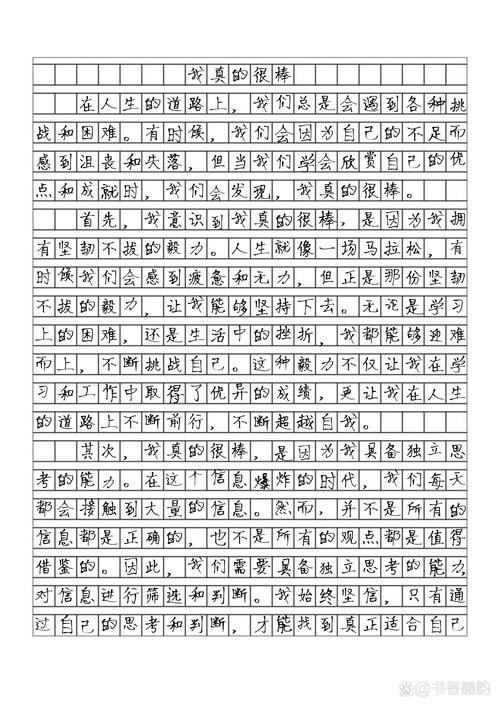 我真的很棒
在人生的道路上，我们总是会遇到各种挑
战和困难。有时候，我们会因为自己的不足而
感到沮丧和失落，但当我们学会欣赏自己的优
点和成就时，我们会发现，我真的很棒。
首先，我意识到我真的很棒，是因为我拥
有坚韧不拔的毅力。人生就像一场马拉松，有
时候我们会感到疲惫和无力，但正是那份坚韧
不拔的毅力，让我能够坚持下去。无论是学习
上的困难，还是生活中的挫折，我都能够迎难
而上，不断挑战自己。这种毅力不仅让我在学
习和工作中取得了优异的成绩，更让我在人生
的道路上不断前行，不断超越自我。
其次，我真的很棒，是因为我具备独立思
考的能力。在这个信息爆炸的时代，我们每天
都会接触到大量的信息。然而，并不是所有的
信息都是正确的，也不是所有的观点都是值得
借鉴的。因此，我们需要具备独立思考的能力，
对信息进行筛选和判断。我始终坚信，只有通
过自己的思考和判断，才能找到真正适合自己